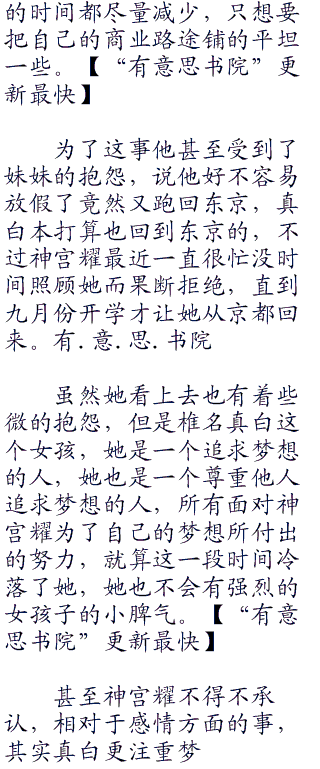 的时间都尽量减少，只想要
把自己的商业路途铺的平坦
一些。【“有意思书院”更
新最快】
为了这事他甚至受到了
妹妹的抱怨，说他好不容易
放假了竟然又跑回东京，真
白本打算也回到东京的，不
过神宫耀最近一直很忙没时
间照顾她而果断拒绝，直到
九月份开学才让她从京都回
来。有.意.思.书院
虽然她看上去也有着些
微的抱怨，但是椎名真白这
个女孩，她是一个追求梦想
的人，她也是一个尊重他人
追求梦想的人，所有面对神
宫耀为了自己的梦想所付出
的努力，就算这一段时间冷
落了她，她也不会有强烈的
女孩子的小脾气。【“有意
思书院”更新最快】
甚至神宫耀不得不承
认，相对于感情方面的事，
其实真白更注重梦